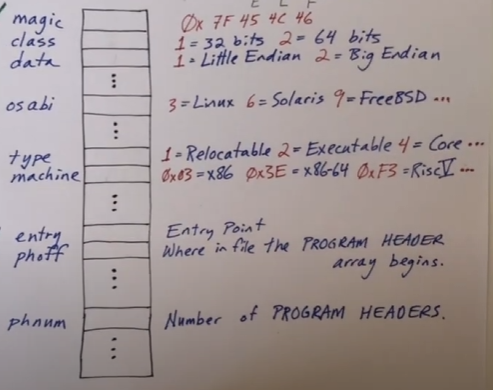 E L F
magic 0x 7F 45 4C 46
class 1 = 32 bits 2 = 64 bits
data 1 = Little Endian 2 = Big Endian
...
osabi 3 = Linux 6 = Solaris 9 = FreeBSD ...
...
type 1 = Relocatable 2 = Executable 4 = Core ...
machine 0x03 = x86 0x3E = x86-64 0xF3 = RiscV ...
...
entry Entry Point
phoff Where in file the PROGRAM HEADER
array begins.
...
phnum Number of PROGRAM HEADERS.
...